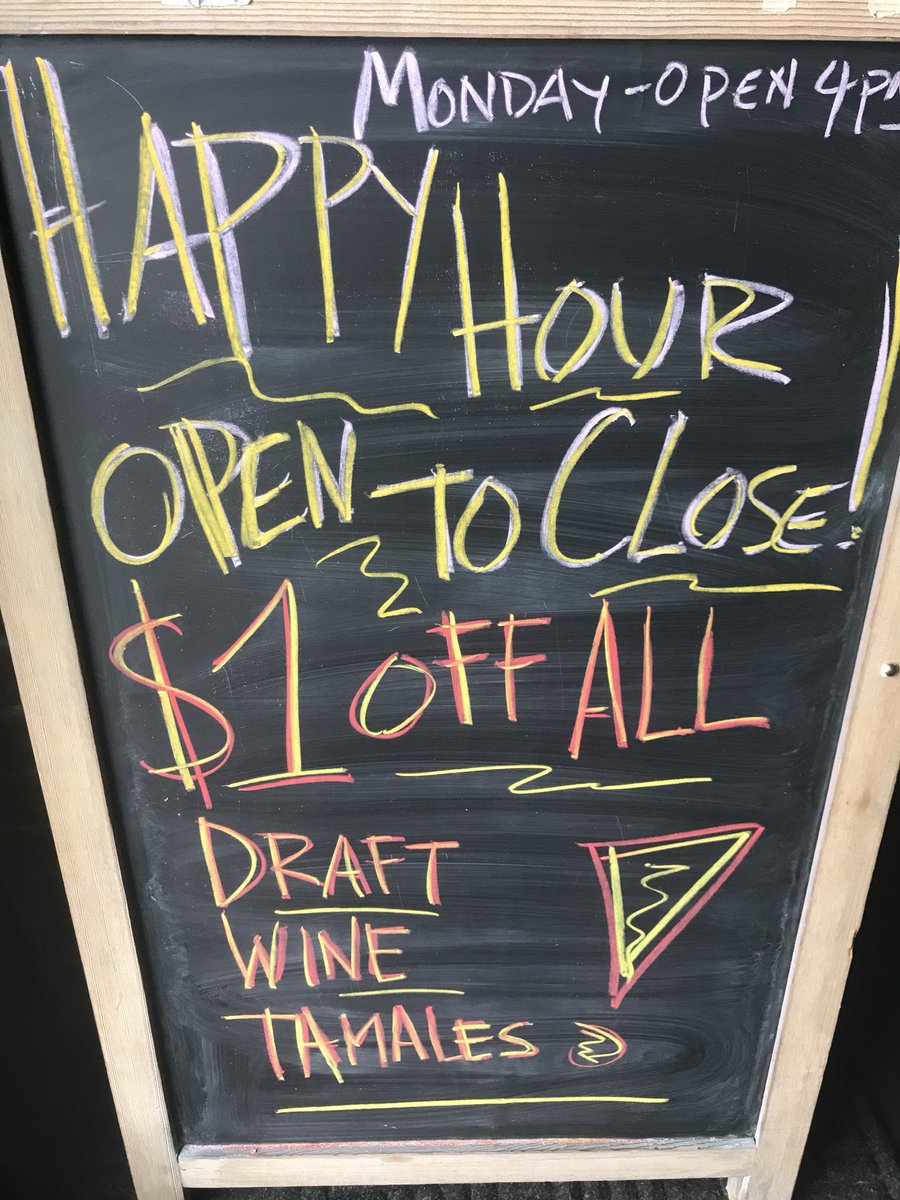 MONDAY-OPEN 4PM
HAPPY HOUR
OPEN TO CLOSE!
$1 OFF ALL
DRAFT
WINE
TAMALES